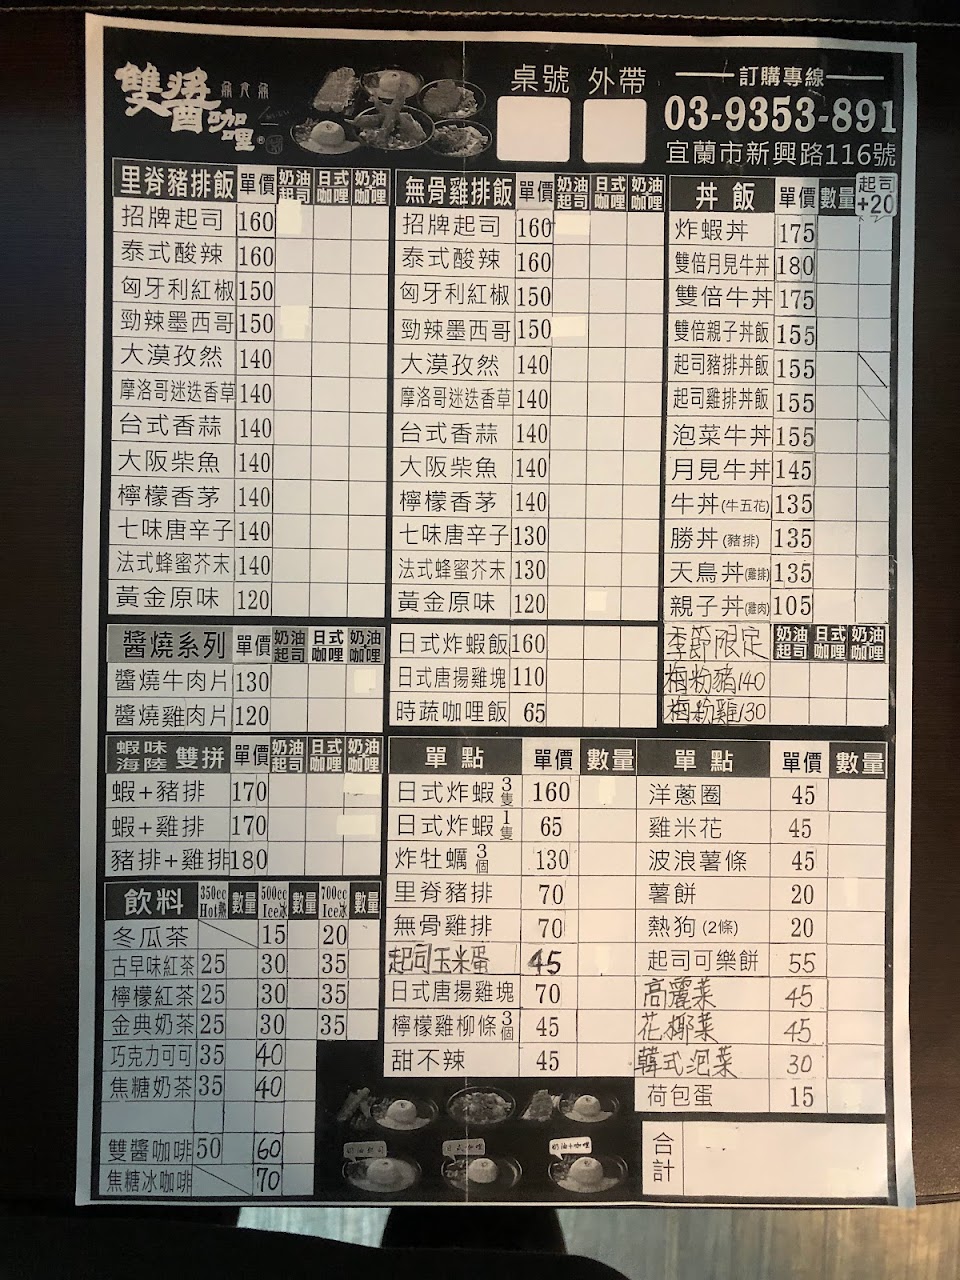 雙醬咖哩
桌號 外帶
訂購專線
03-9353-891
宜蘭市新興路116號
里脊豬排飯 單價 奶油起司 日式咖哩 奶油咖哩
招牌起司 160
泰式酸辣 160
匈牙利紅椒 150
勁辣墨西哥 150
大漠孜然 140
摩洛哥迷迭香草 140
台式香蒜 140
大阪柴魚 140
檸檬香茅 140
七味唐辛子 140
法式蜂蜜芥末 140
黃金原味 120
無骨雞排飯 單價 奶油起司 日式咖哩 奶油咖哩
招牌起司 160
泰式酸辣 160
匈牙利紅椒 150
勁辣墨西哥 150
大漠孜然 140
摩洛哥迷迭香草 140
台式香蒜 140
大阪柴魚 140
檸檬香茅 140
七味唐辛子 130
法式蜂蜜芥末 130
黃金原味 120
丼飯 單價 數量 起司+20
炸蝦丼 175
雙倍月見牛丼 180
雙倍牛丼 175
雙倍親子丼飯 155
起司豬排丼飯 155
起司雞排丼飯 155
泡菜牛丼 155
月見牛丼 145
牛丼(牛五花) 135
勝丼(豬排) 135
天鳥丼(雞排) 135
親子丼(雞肉) 105
醬燒系列 單價 奶油起司 日式咖哩 奶油咖哩
醬燒牛肉片 130
醬燒雞肉片 120
日式炸蝦飯 160
日式唐揚雞塊 110
時蔬咖哩飯 65
季節限定 奶油起司 日式咖哩 奶油咖哩
梅粉豬140
梅粉雞130
蝦味海陸 雙拼 單價 奶油起司 日式咖哩 奶油咖哩
蝦+豬排 170
蝦+雞排 170
豬排+雞排 180
單點 單價 數量
日式炸蝦3隻 160
日式炸蝦1隻 65
炸牡蠣3個 130
里脊豬排 70
無骨雞排 70
起司玉米蛋 45
日式唐揚雞塊 70
檸檬雞柳條3個 45
甜不辣 45
單點 單價 數量
洋蔥圈 45
雞米花 45
波浪薯條 45
薯餅 20
熱狗(2條) 20
起司可樂餅 55
高麗菜 45
花椰菜 45
韓式泡菜 30
荷包蛋 15
飲料 350cc Hot熱 數量 500cc Ice冰 數量 700cc Ice冰 數量
冬瓜茶 15 20
古早味紅茶 25 30 35
檸檬紅茶 25 30 35
金典奶茶 25 30 35
巧克力可可 35 40
焦糖奶茶 35 40
雙醬咖啡 50 60
焦糖冰咖啡 70
奶油起司 日式咖哩 奶油咖哩
合計